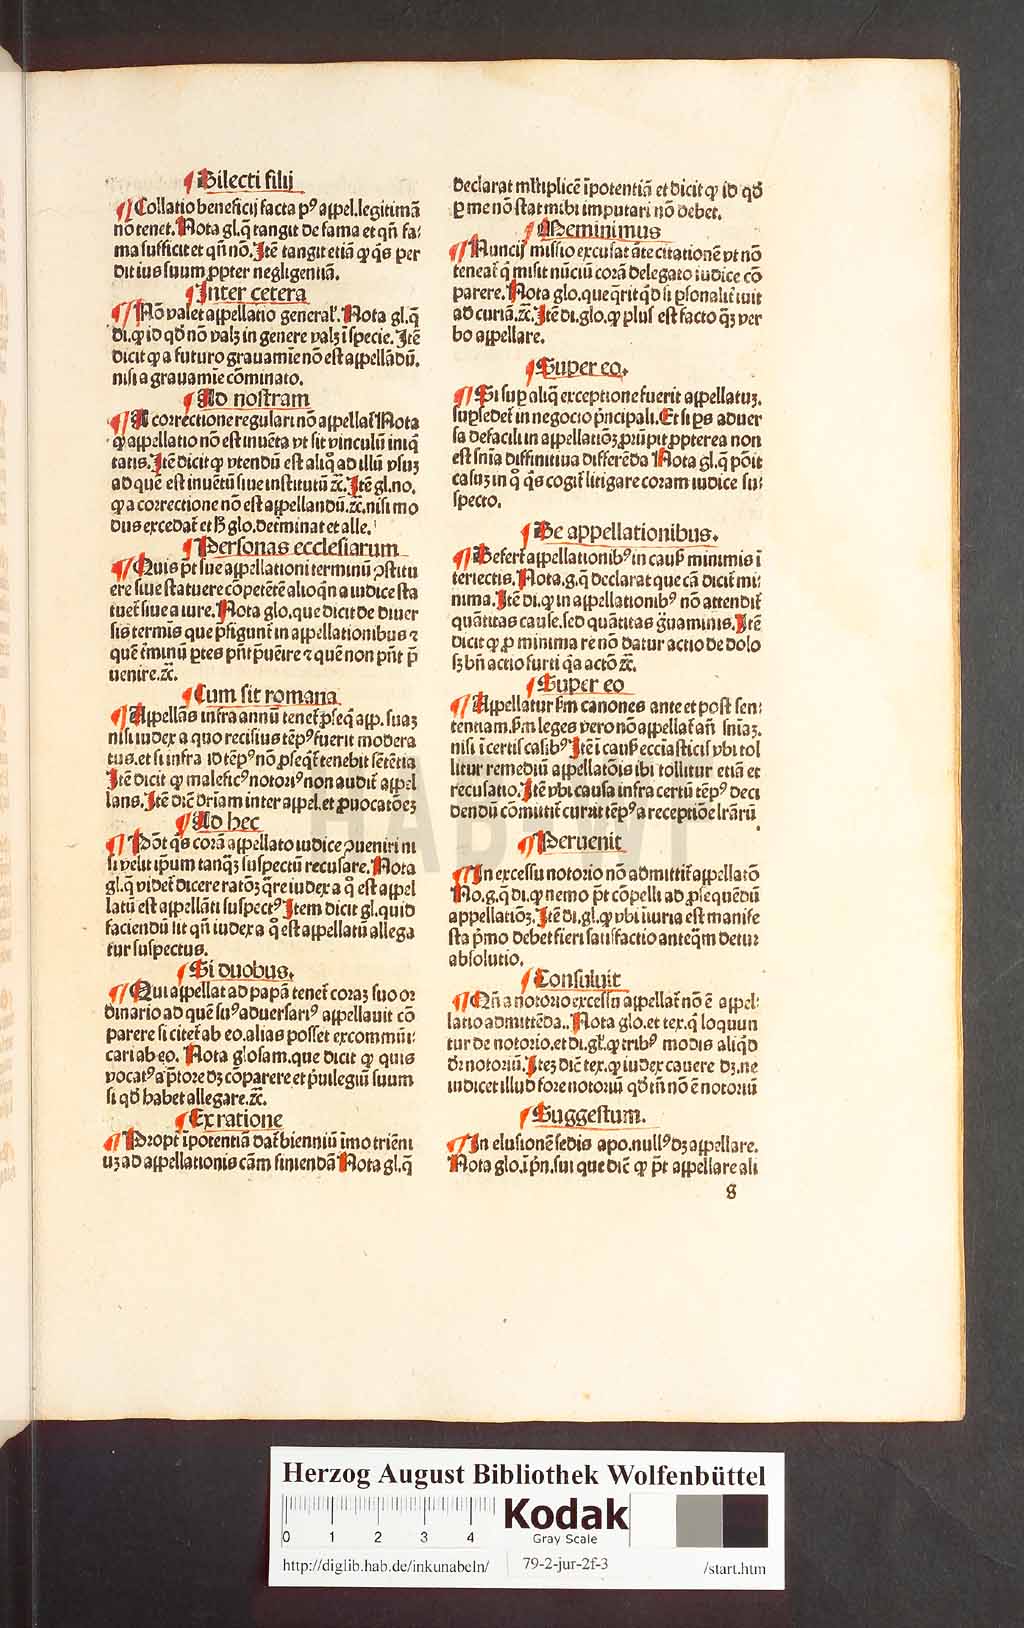 Dilecti filij
Collatio beneficij facta pꝰ appel.legitimā
nō tenet. Nota gl.q̄ tangit de fama et qn̄ fa⸗
ma sufficit et qn̄ nō. Itē tangit etiā ꝙ q̄s per
dit ius suum ꝓpter negligentiā.
Inter cetera
Nō valet appellatio general'. Nota gl.q̄
di.ꝙ id qd̄ nō valꝫ in genere valꝫ ī specie. Itē
dicit ꝙ a futuro grauamīe nō est appellādū.
nisi a grauamīe cōminato.
Ad nostram
A correctione regulari nō appellat᷑ Nota
ꝙ appellatio nō est inuēta vt sit vinculū iniq̇
tatis. Itē dicit ꝙ vtendū est aliq̊ ad illū vsuꝫ
ad quē est inuētū siue institutū ⁊c̄. Itē gl.no.
ꝙ a correctione nō est appellandū.⁊c̄.nisi mo
dus excedat᷑ et h̄ glo.det᷑minat et alle.
Personas ecclesiarum
Quis pt̄ sue appellationi terminū ꝯstitu
ere siue statuere cōpetētē alioqn̄ a iudice sta
tuet᷑ siue a iure. Nota glo.que dicit de diuer
sis termīs que p̄figunt᷑ in appellationibus ⁊
quē t᷑minū ꝑtes pn̄t p̄uēire ⁊ quē non pn̄t p̄
uenire.⁊c̄.
Cum sit romana
Appellās infra annū tenet᷑ ꝓseq̄ app. suaꝫ
nisi iudex a quo recisius tēpꝰ fuerit modera
tus.et si infra id tēpꝰ nō ꝓseqt᷑ tenebit sētētia
Itē dicit ꝙ maleficꝰ notoriꝰ non audit᷑ appel
lans. Itē dic̄ dr̄iam inter appel.et ꝓuocatōeꝫ
Ad hec
Pōt q̄s corā appellato iudice ꝯueniri ni
si velit ip̄um tanqꝫ suspectū recusare. Nota
gl.q̄ videt᷑ dicere ratōꝫ q̄re iudex a q̊ est appel
latū est appellāti suspectꝰ Item dicit gl.quid
faciendū sit qn̄ iudex a q̊ est appellatū allega
tur suspectus.
Si duobus.
Qui appellat ad papā tenet᷑ coraꝫ suo or
dinario ad quē suꝰ aduersariꝰ appellauit cō
parere si citet᷑ ab eo.alias posset excommūi⸗
cari ab eo. Nota glosam.que dicit ꝙ quis
vocatꝰ a p̄tore dꝫ cōparere et p̄uilegiū suum
si qd̄ habet allegare.⁊c̄.
Ex ratione
Propt᷑ īpotentiā dat᷑ bienniū īmo triēni
uꝫ ad appellationis cām finiendā Nota gl.q̄
declarat ml'tiplicē īpotentiā et dicit ꝙ id qd̄
ꝑ me nō stat mihi imputari nō debet.
Meminimus
Nuncij missio excusat āte citationē vt nō
teneat᷑ q̇ misit nūciū corā delegato iudice cō
parere. Nota glo.que q̄rit qd̄ si ꝑsonalit᷑ iuit
ad curiā.⁊c̄. Itē di.glo.ꝙ plus est facto qꝫ ver
bo appellare.
Super eo.
Si suꝑ aliq̄ exceptione fuerit appellatuꝫ.
suꝑsedet᷑ in negocio p̄ncipali. Et si ps aduer
sa defacili in appellatiōꝫ ꝓrūpit ꝓpterea non
est sn̄ia diffinitiua differēda Nota gl.q̄ pōit
casuꝫ in q̊ q̄s cogit᷑ litigare coram iudice su⸗
specto.
De appellationibus.
Defert᷑ appellationibꝰ in caus̄ minimis ī
teriectis. Nota.g.q̄ declarat que cā dicit᷑ mi⸗
nima. Itē di.ꝙ in appellationibꝰ nō attendit᷑
quātitas cause.sed quātitas g̊uaminis. Itē
dicit ꝙ ꝓ minima re nō datur actio de dolo
sꝫ bn̄ actio furti q̇a actō ⁊c̄.
Super eo
Appellatur s̄m canones ante et post sen⸗
tentiam.s̄m leges vero nō appellat᷑ an̄ sn̄iaꝫ.
nisi ī certis casibꝰ Itē ī caus̄ ecciasticis vbi tol
litur remediū appellatōis ibi tollitur etiā et
recusatio. Itē vbi causa infra certū tēpꝰ deci
dendū cōmittit᷑ currit tēpꝰ a receptiōe lr̄arū
Peruenit
In excessu notorio nō admittit᷑ appellatō
No.g.q̄ di.ꝙ nemo pt̄ cōpelli ad ꝓsequēdū
appellatiōꝫ. Itē di.gl.ꝙ vbi iiuria est manife
sta p̄mo debet fieri satisfactio anteq̄m detur
absolutio.
Consuluit
Qn̄ a notorio excessu appellat᷑ nō ē appel⸗
latio admittēda.. Nota glo.et tex.q̇ loquun
tur de notorio.et di.gl'.ꝙ tribꝰ modis aliqd̄
dr̄ notoriū. Iteꝫ dic̄ tex.ꝙ iudex cauere dꝫ.ne
iudicet illud fore notoriū qd̄ tn̄ nō ē notoriū
Suggestum.
In elusionē sedis apo.nullꝰ dꝫ appellare.
Nota glo.ī pn̄.sui que dic̄ ꝙ pt̄ appellare ali
g
HAB-WF
Herzog August Bibliothek Wolfenbüttel
0 1 2 3 4
Kodak
Gray Scale
http://diglib.hab.de/inkunabeln/ 79-2-jur-2f-3 /start.htm